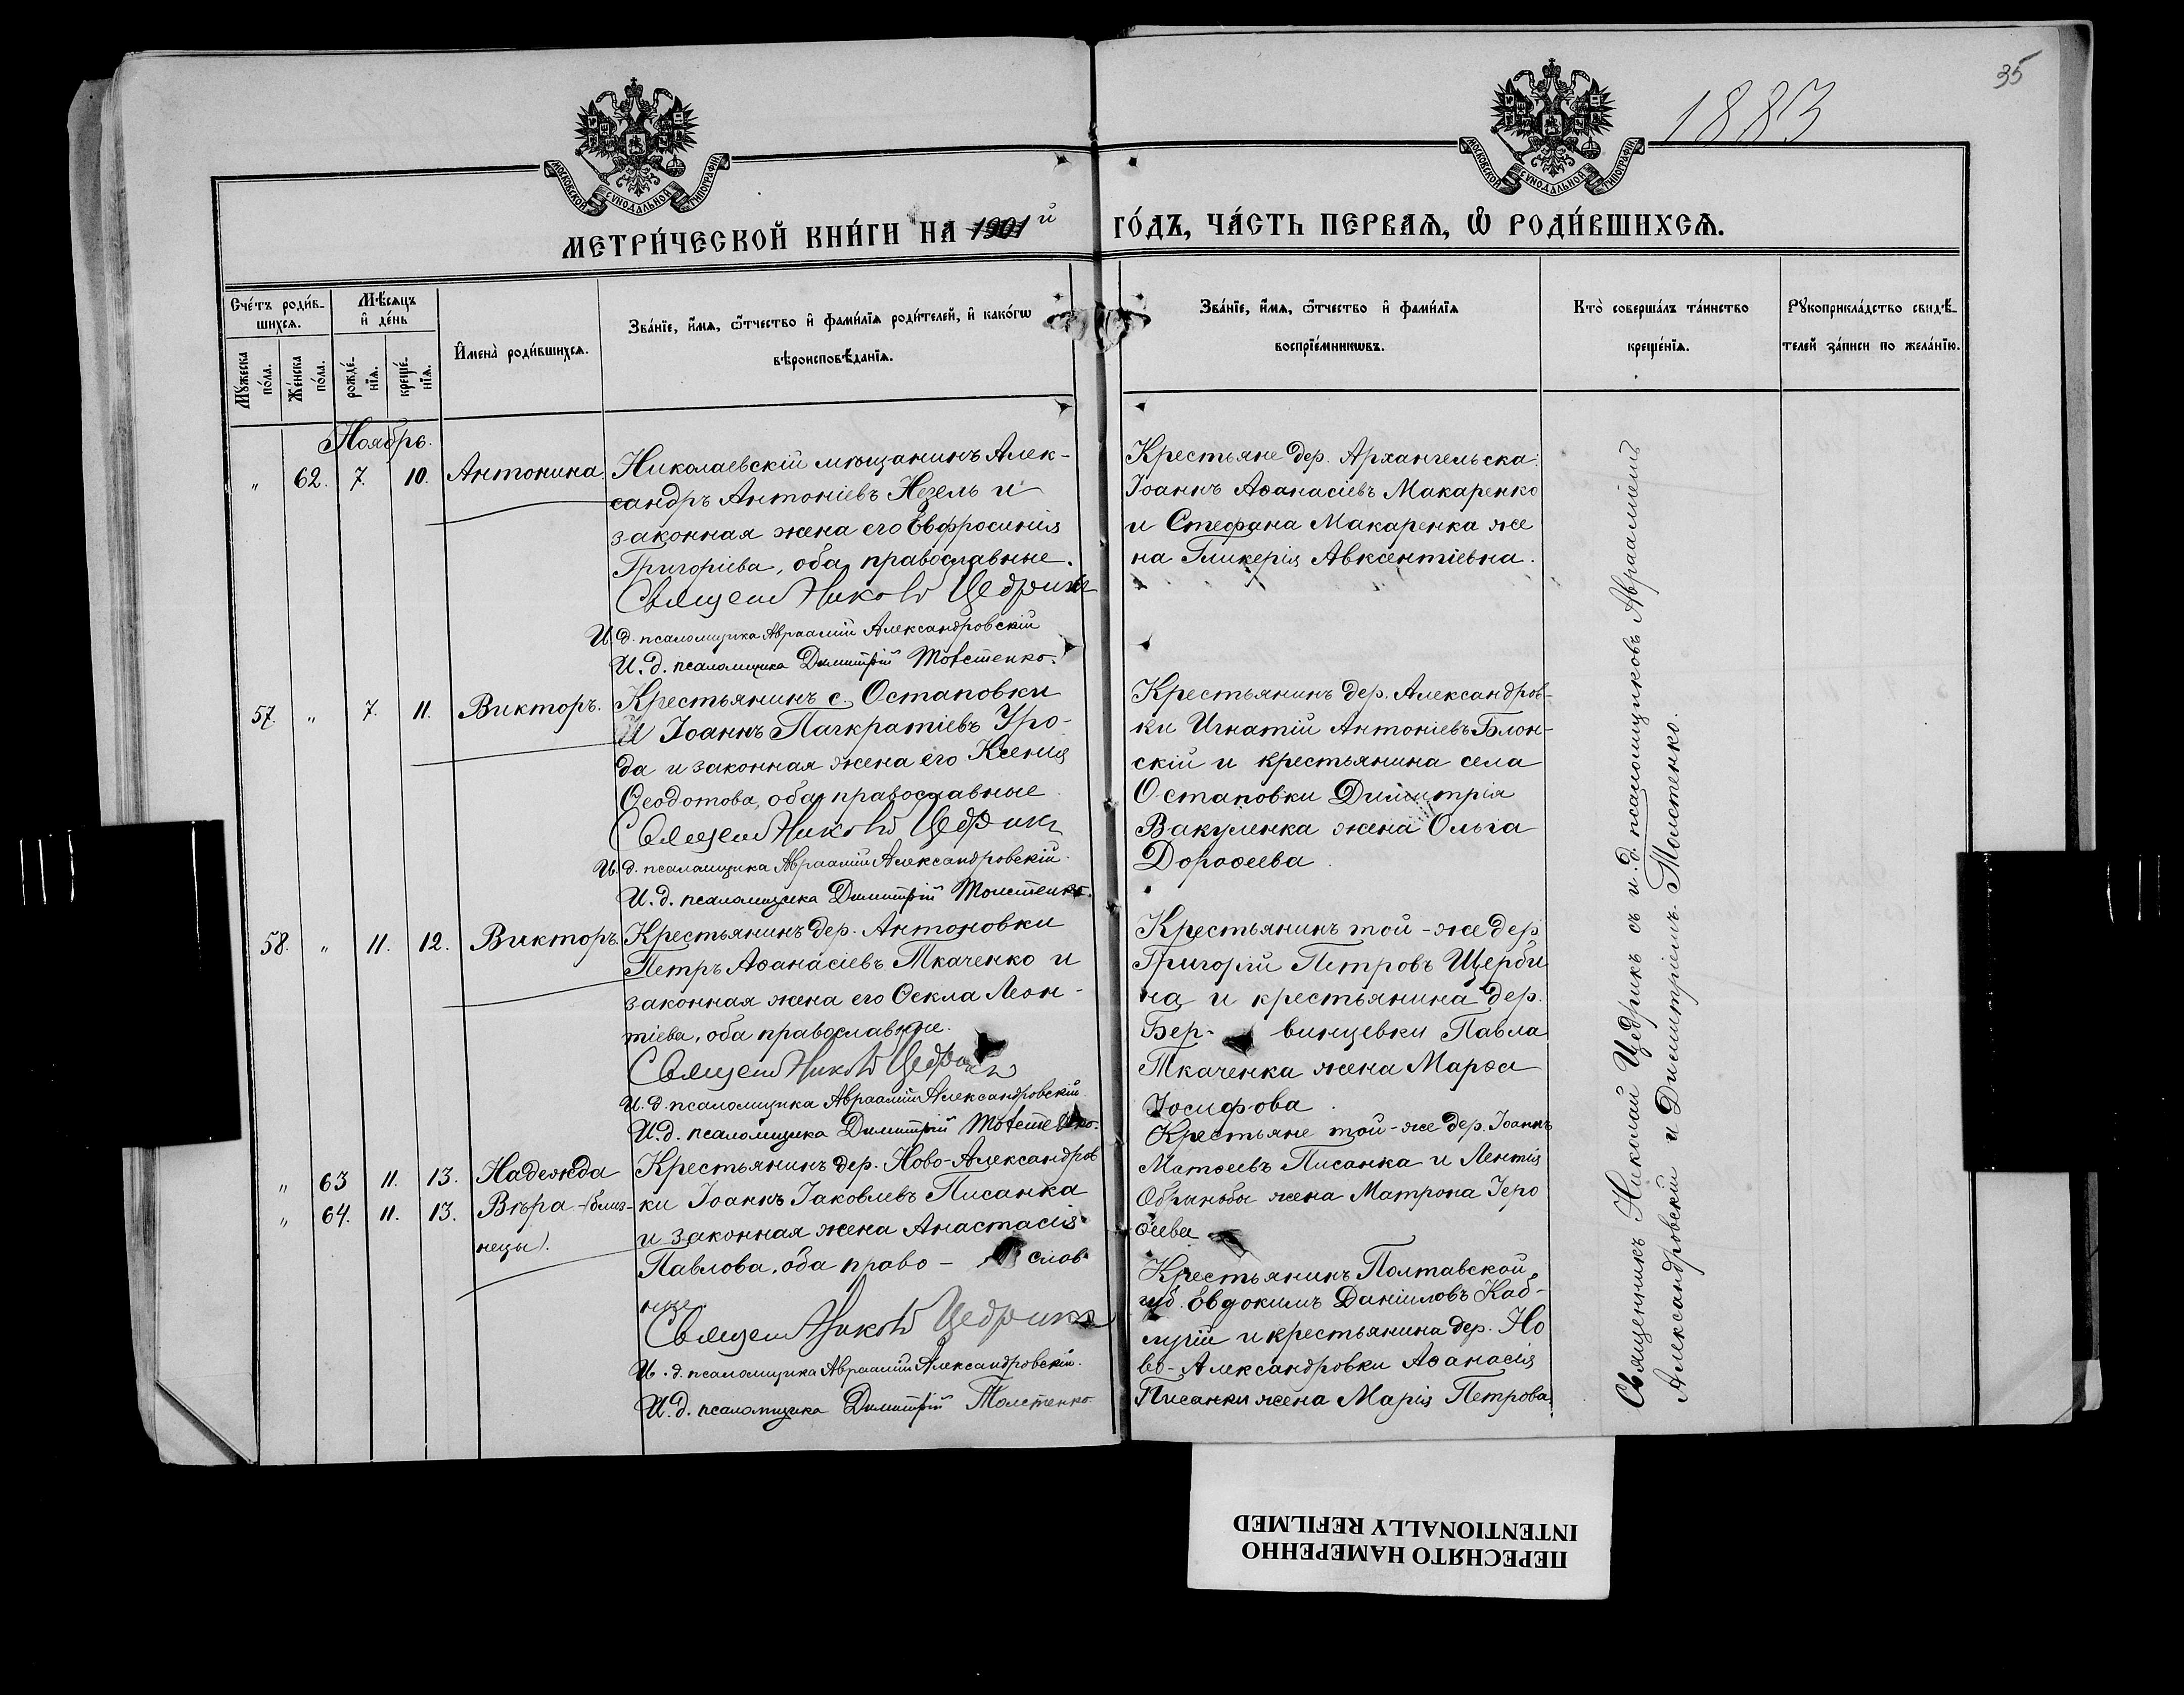 35
1883
МОСКОВСКОЙ СѴНОДАЛЬНОЙ ТИПОГРАФІИ
МОСКОВСКОЙ СѴНОДАЛЬНОЙ ТИПОГРАФІИ
МЕТРИ́ЧЕСКОЙ КНИ́ГИ НА 1901 й ГО́ДЪ, ЧА́СТЬ ПЕРВАѦ, Ѡ҆ РОДИ́ВШИХСѦ.
Сче́тъ роди́в-
шихсѧ.
Мѣ́сѧцъ
и҆ де́нь
Мꙋ́жеска
по́ла.
Же́нска
по́ла.
рожде́-
нїѧ.
креще́-
нїѧ.
И҆мена̀ роди́вшихсѧ.
Зва́нїе, и҆́мѧ, ѻ҆́тчество и҆ фами́лїѧ роди́телей, и҆ како́гѡ
вѣроисповѣ́данїѧ.
Зва́нїе, и҆́мѧ, ѻ҆́тчество и҆ фами́лїѧ
воспрїе́мникѡвъ.
Кто̀ соверша́лъ та́инство
креще́нїѧ.
Рꙋкоприкла́дство свидѣ́-
телей за́писи по жела́нїю.
Ноябрь.
„ 62. 7. 10. Антонина
Николаевскій мѣщанинъ Алек-
сандръ Антоніевъ Незель и
законная жена его Евфросинія
Григоріева, оба православные.
Священ Никол Цедрикъ
И. д. псаломщика Авраамій Александровскій
И. д. псаломщика Димитрій Товстенко.
Крестьяне дер. Архангельска
Іоаннъ Аѳанасіевъ Макаренко
и Стефана Макаренка же
на Гликерія Авксентіевна.
57. „ 7. 11. Викторъ.
Крестьянинъ с. Остаповки
Іоаннъ Панкратіевъ Уро-
да и законная жена его Ксенія
Ѳеодотова, оба православные
Священ Никол Цедрикъ
И. д. псаломщика Авраамій Александровскій.
И. д. псаломщика Димитрій Толстенко.
Крестьянинъ дер. Александров-
ки Игнатій Антоніевъ Блон-
скій и крестьянина села
Остаповки Димитрія
Вакуленка жена Ольга
Дороѳеева.
58. „ 11. 12. Викторъ.
Крестьянинъ дер. Антоновки
Петръ Аѳанасіевъ Ткаченко и
законная жена его Ѳекла Леон-
тіева, оба православные.
Священ Никол Цедрикъ
И. д. псаломщика Авраамій Александровскій
И. д. псаломщика Димитрій Товстенко.
Крестьянинъ той-же дер
Григорій Петровъ Щерби
на и крестьянина дер.
Бер- винцевки Павла
Ткаченка жена Марѳа
Іосифова.
„ 63 11. 13. Надежда
„ 64. 11. 13. Вѣра (близ-
нецы).
Крестьянинъ дер. Ново-Александров
ки Іоаннъ Іаковлевъ Писанка
и законная жена Анастасія
Павлова, оба право- слав
ные.
Священ Никол Цедрикъ
И. д. псаломщика Авраамій Александровскій.
И. д. псаломщика Димитрій Толстенко
Крестьяне той-же дер. Іоаннъ
Матѳеевъ Писанка и
жена Матрона Іеро
ѳеева
Крестьянинъ Полтавской
губ. Евдокимъ Даніиловъ Каб-
лущій и крестьянина дер. Но
во-Александровки Аѳанасія
Писанки жена Марія Петрова.
Священникъ Николай Цедрикъ съ и. д. псаломщиковъ Авраамiемъ
Александровскiй и Димитріемъ Толстенко.
ПЕРЕСНЯТО НАМЕРЕННО
INTENTIONALLY REFILMED